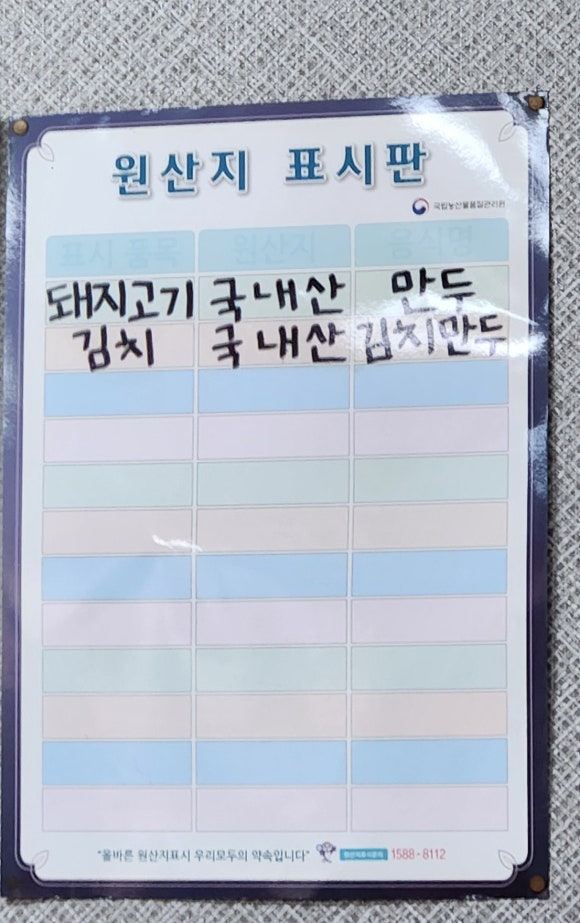 원산지 표시판
국립농산물품질관리원
표시 품목 원산지 음식명
돼지고기 국내산 만두
김치 국내산 김치만두
"올바른 원산지표시 우리모두의 약속입니다" 1588-8112